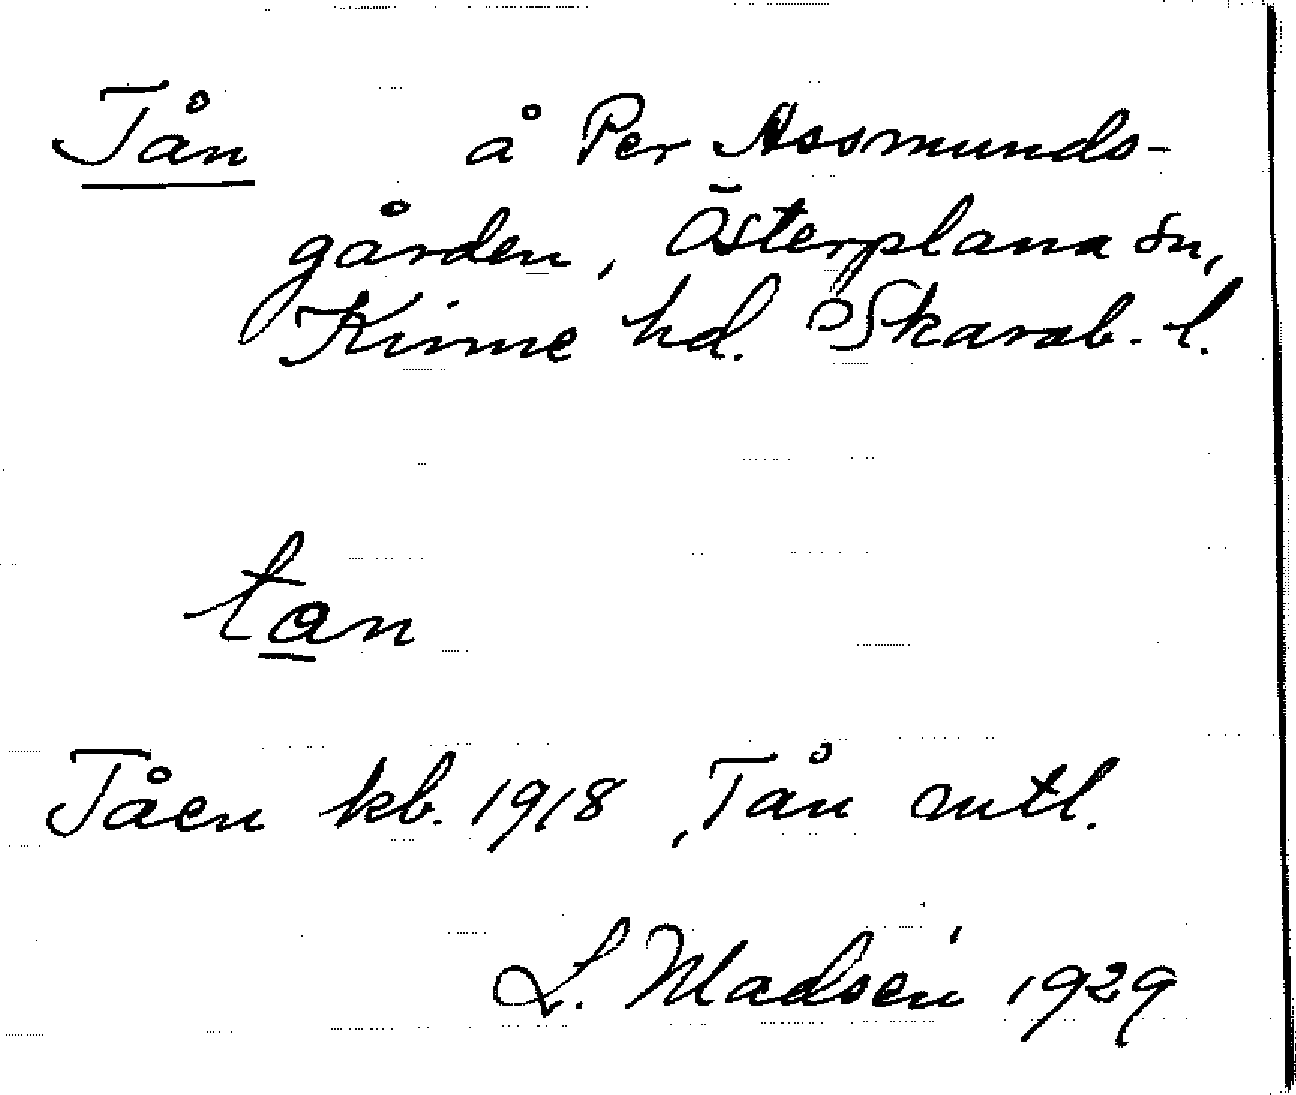 Tån å Per Assmunds-
gården, Österplana sn,
Kinne hd. Skarab. l.
tan
Tåen kb. 1918, Tån mtl.
L. Madsén 1929